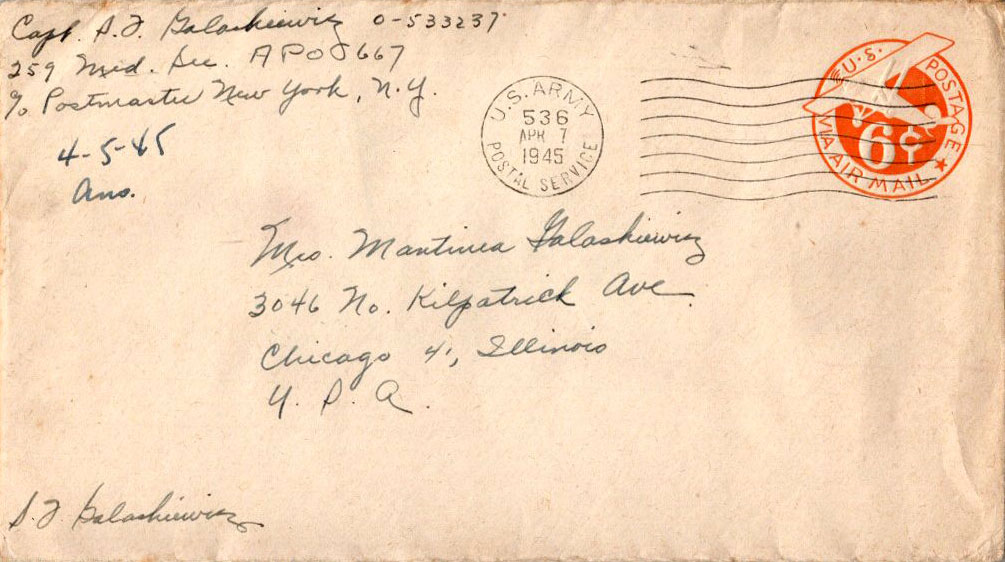 Capt. S. F. Galaskiewicz O-533237
259 Med. Det. APO 667
c/o Postmaster New York, N.Y.
4-5-45
Ans.
U.S. ARMY
536
APR 7
1945
POSTAL SERVICE
U.S. POSTAGE
6¢
VIA AIR MAIL
Mrs. Martinea Galaskiewicz
3046 No. Kilpatrick Ave
Chicago 41, Illinois
U. S. A.
S. F. Galaskiewicz